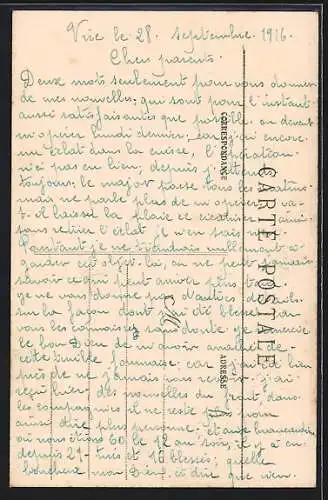 Vire le 28 septembre 1916.
Chers parents.
Deux mots seulement pour vous donner
de mes nouvelles; qui sont pour l'instant
aussi satisfaisantes que possible. on devait
m'opérer lundi dernier, car j'ai encore
un éclat dans la cuisse, l'opération
n'ai pas eu lieu; depuis j'attends
toujours; le major passe tous les matins
mais ne parle plus de m'opérer, va-
t-il laisser la plaie ce cicatriser ainsi
sans retirer l'éclat je n'en sais rien
Pourtant je ne tiendrais nullement à
garder cet objet-là, on ne peut jamais
savoir ce qui peut arriver plus tard.
je ne vous donne pas d'autres détails
sur la façon dont j'ai été blessé car
vous les connaissez sans doute je remercie
le bon Dieu de m'avoir
cette terrible fournaise; car j'ai été bien
près de ne jamais vous revoir. j'ai
reçu hier des nouvelles du front, dans
les compagnies il ne reste
dire plus personne. et aux
ou nous étions 60 le 12 au soir, il y a eu
depuis 21 tués et 18 blessés; quelle
boucherie mon Dieu. et dire que rien
CORRESPONDANCE
CARTE POSTALE
M
ADRESSE